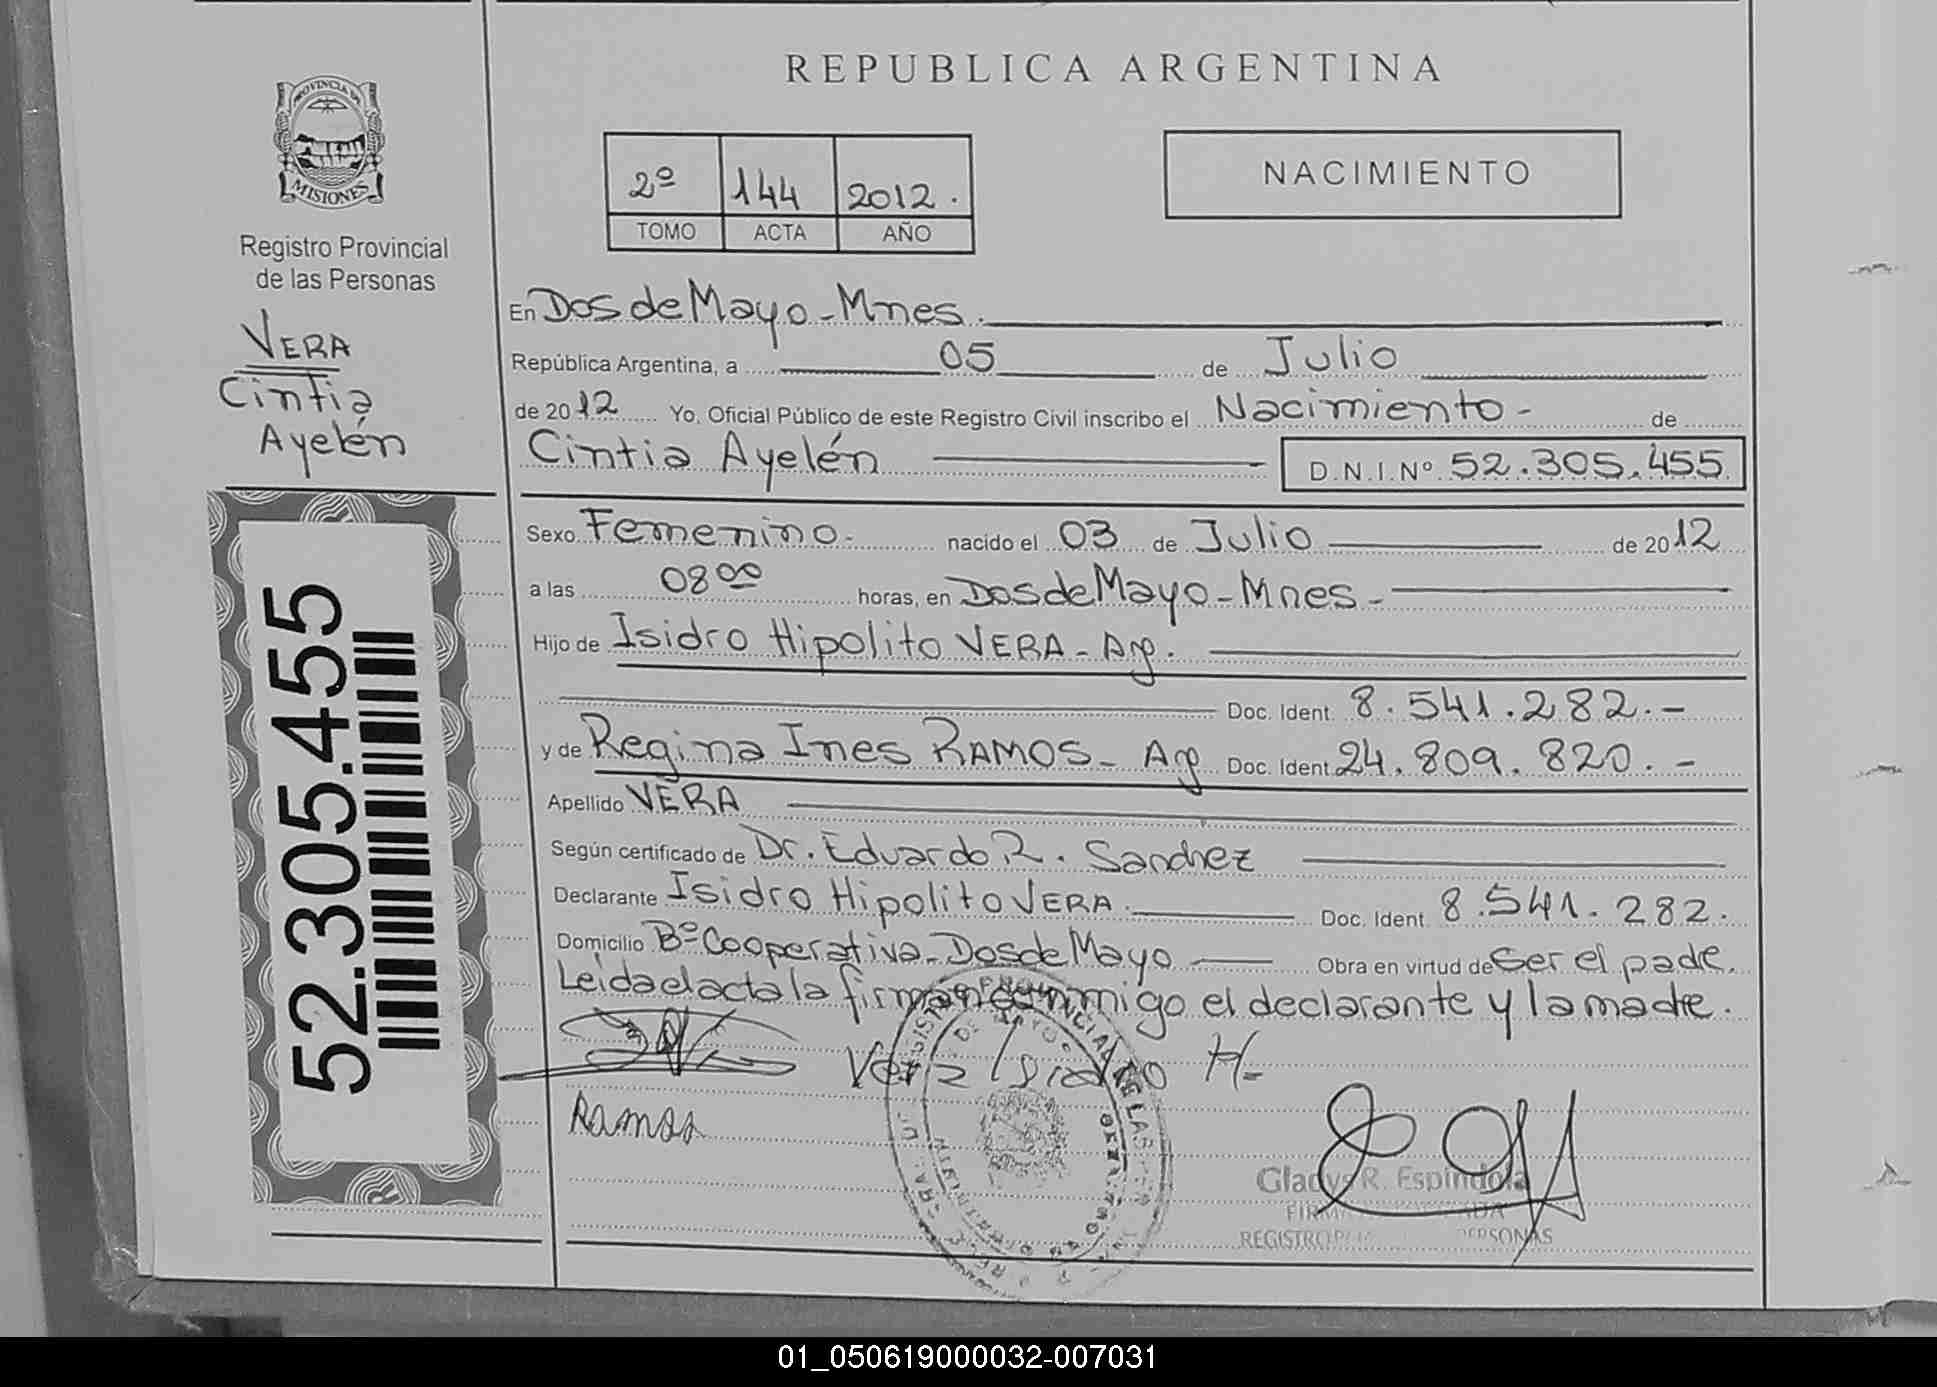 REPUBLICA ARGENTINA
PROVINCIA DE
MISIONES
Registro Provincial
de las Personas
VERA
Cintia
Ayelén
52.305.455
2º 144 2012.
TOMO ACTA AÑO
NACIMIENTO
En Dos de Mayo - Mnes.
República Argentina, a 05 de Julio
de 2012 Yo, Oficial Público de este Registro Civil inscribo el Nacimiento - de
Cintia Ayelén D.N.I.Nº 52.305.455
Sexo Femenino - nacido el 03 de Julio de 2012
a las 08 00 horas, en Dos de Mayo - Mnes -
Hijo de Isidro Hipolito VERA - Arg.
Doc. Ident. 8.541.282.-
y de Regina Ines RAMOS - Arg Doc. Ident. 24.809.820.-
Apellido VERA
Según certificado de Dr. Eduardo R. Sanchez
Declarante Isidro Hipolito VERA. Doc. Ident. 8.541.282.
Domicilio Bº Cooperativa - Dos de Mayo Obra en virtud de Ser el padre.
Leida el acta la firman conmigo el declarante y la madre.
Vera Isidro H.
Ramos
Gladys R. Espíndola
REGISTRO PERSONAS
01_050619000032-007031